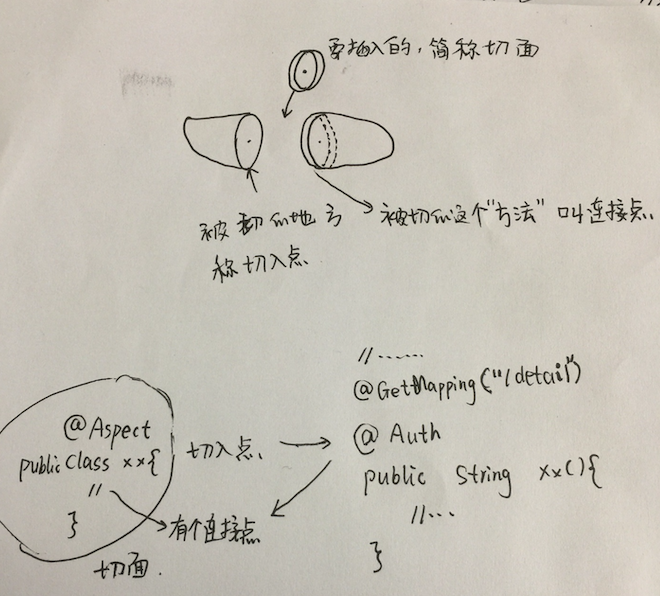 要插入的，简称切面
被切的地方
称切入点
被切的这个"方法"叫连接点
//......
@GetMapping("/detail")
@Aspect
public class xx{
//
}
切面.
切入点
有个连接点
@Auth
public String xx(){
//...
}